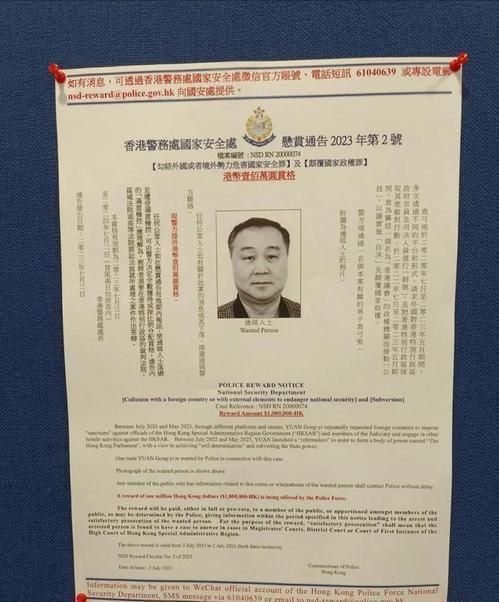 如有消息，可透過香港警務處國家安全處微信官方賬號、電話短訊 61040639 或專設電郵
nsd-reward@police.gov.hk 向國安處提供。
香港警務處國家安全處 懸賞通告 2023 年第 2 號
檔案編號：NSD RN 20000074
【勾結外國或者境外勢力危害國家安全罪】及【顛覆國家政權罪】
港幣壹佰萬圓賞格
袁弓夷於二〇二〇年七月至二〇二三年五月期間，
多次透過不同的平台和形式，請求外國對香港特別行政區
政府官員及司法人員進行「制裁」，及對香港特別行政區採
取其他敵對行動，於二〇二二年七月至二〇二三年五月期
間，袁籌組一個名為「香港議會」的政權機關而發動「公
投」，以圖實施「自決」及顛覆國家政權。
警方現通緝一名與本案有關的男子袁弓夷。
附圖為通緝人士的相片。
通緝人士
Wanted Person
任何公眾人士如有關於此案的消息或其下落，請盡速與警
方聯絡。
現警方提供港幣壹佰萬圓賞格。
本賞格有效期為二〇二三年七月三日
至二〇二四年七月二日（首尾兩日包括在內）
香港警務處處長
通告發出日期：二〇二三年七月三日
POLICE REWARD NOTICE
National Security Department
[Collusion with a foreign country or with external elements to endanger national security] and [Subversion]
Case Reference : NSD RN 20000074
Reward Amount $1,000,000-HK
Between July 2020 and May 2023, through different platforms and means, YUAN Gong-yi repeatedly requested foreign countries to impose
"sanctions" against officials of the Hong Kong Special Administrative Region Government ("HKSAR") and members of the Judiciary and engage in other
hostile activities against the HKSAR. Between July 2022 and May 2023, YUAN launched a "referendum" in order to form a body of power named "The
Hong Kong Parliament", with a view to achieving "self-determination" and subverting the State power.
One male YUAN Gong-yi is wanted by Police in connection with this case.
Photograph of the wanted person is shown above.
Any member of the public who has information related to this crime or whereabouts of the wanted person shall contact Police without delay.
A reward of one million Hong Kong dollars ($1,000,000-HK) is being offered by the Police Force.
The reward will be paid, either in full or pro-rata, to a member of the public, or apportioned amongst members of the
public, as may be determined by the Police, giving information within the period specified in this notice leading to the arrest and
satisfactory prosecution of the wanted person. For the purpose of the reward, "satisfactory prosecution" shall mean that the
arrested person is found to have a case to answer in cases in Magistrates' Courts, District Court or Court of First Instance of the
High Court of Hong Kong Special Administrative Region.
The above reward is valid from 3 July 2023 to 2 July 2024 (both dates inclusive)
NSD Reward Circular No. 2 of 2023
Date of Issue : 3 July 2023
Commissioner of Police
Hong Kong
Information may be given to WeChat official account of the Hong Kong Police Force National
Security Department, SMS message via 61040639 or email to nsd-reward@police.gov.hk